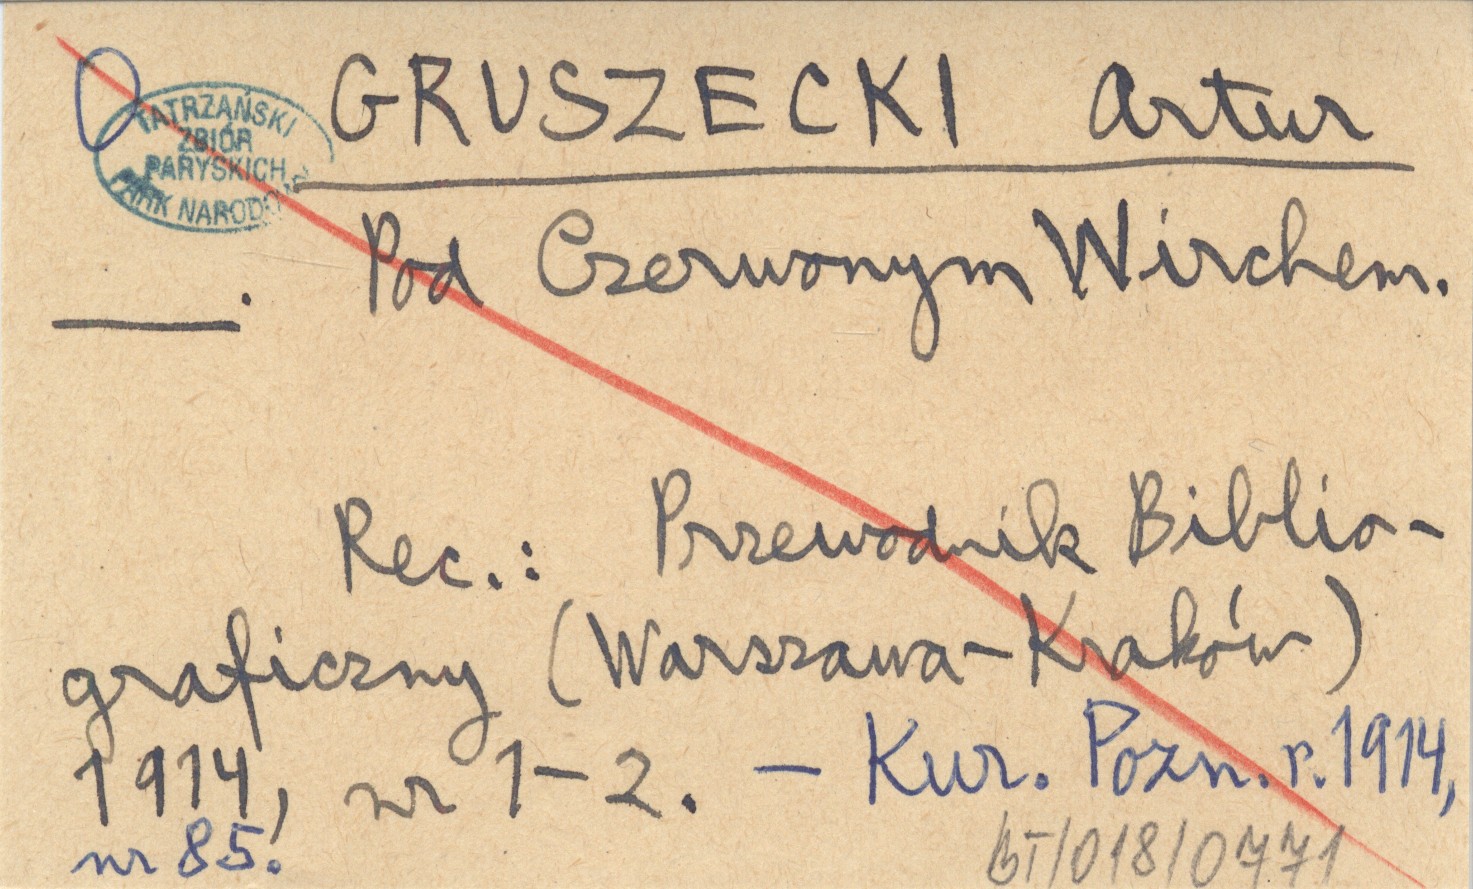 GRUSZECKI Artur
TATRZAŃSKI
ZBIÓR
PARYSKICH
PARK NARODOWY
——. Pod Czerwonym Wirchem.
Rec.: Przewodnik Biblio-
graficzny (Warszawa-Kraków)
1914, nr 1-2. — Kur. Pozn. r. 1914,
nr 85.
BT/018/0771